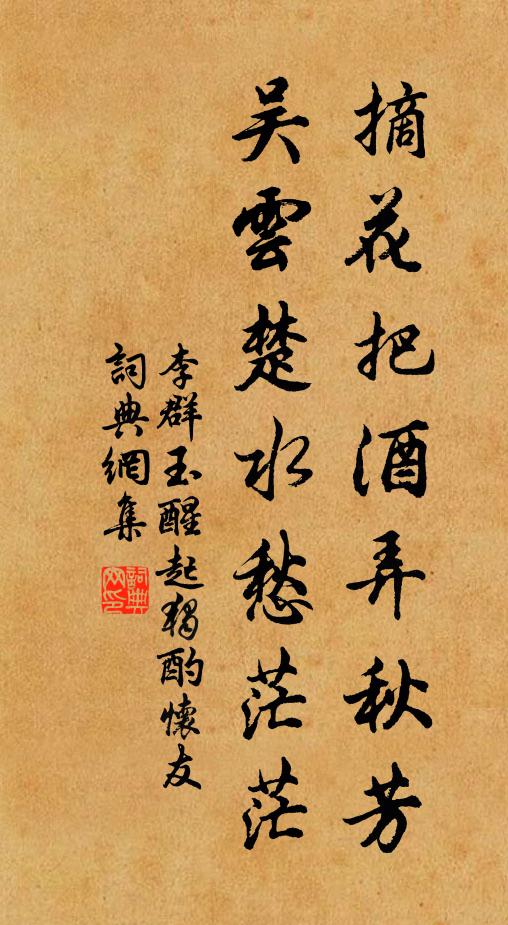 摘花把酒弄秋芳
吳雲楚水愁茫茫
李群玉醒起獨酌懷友
詞典網集
詞典
網印